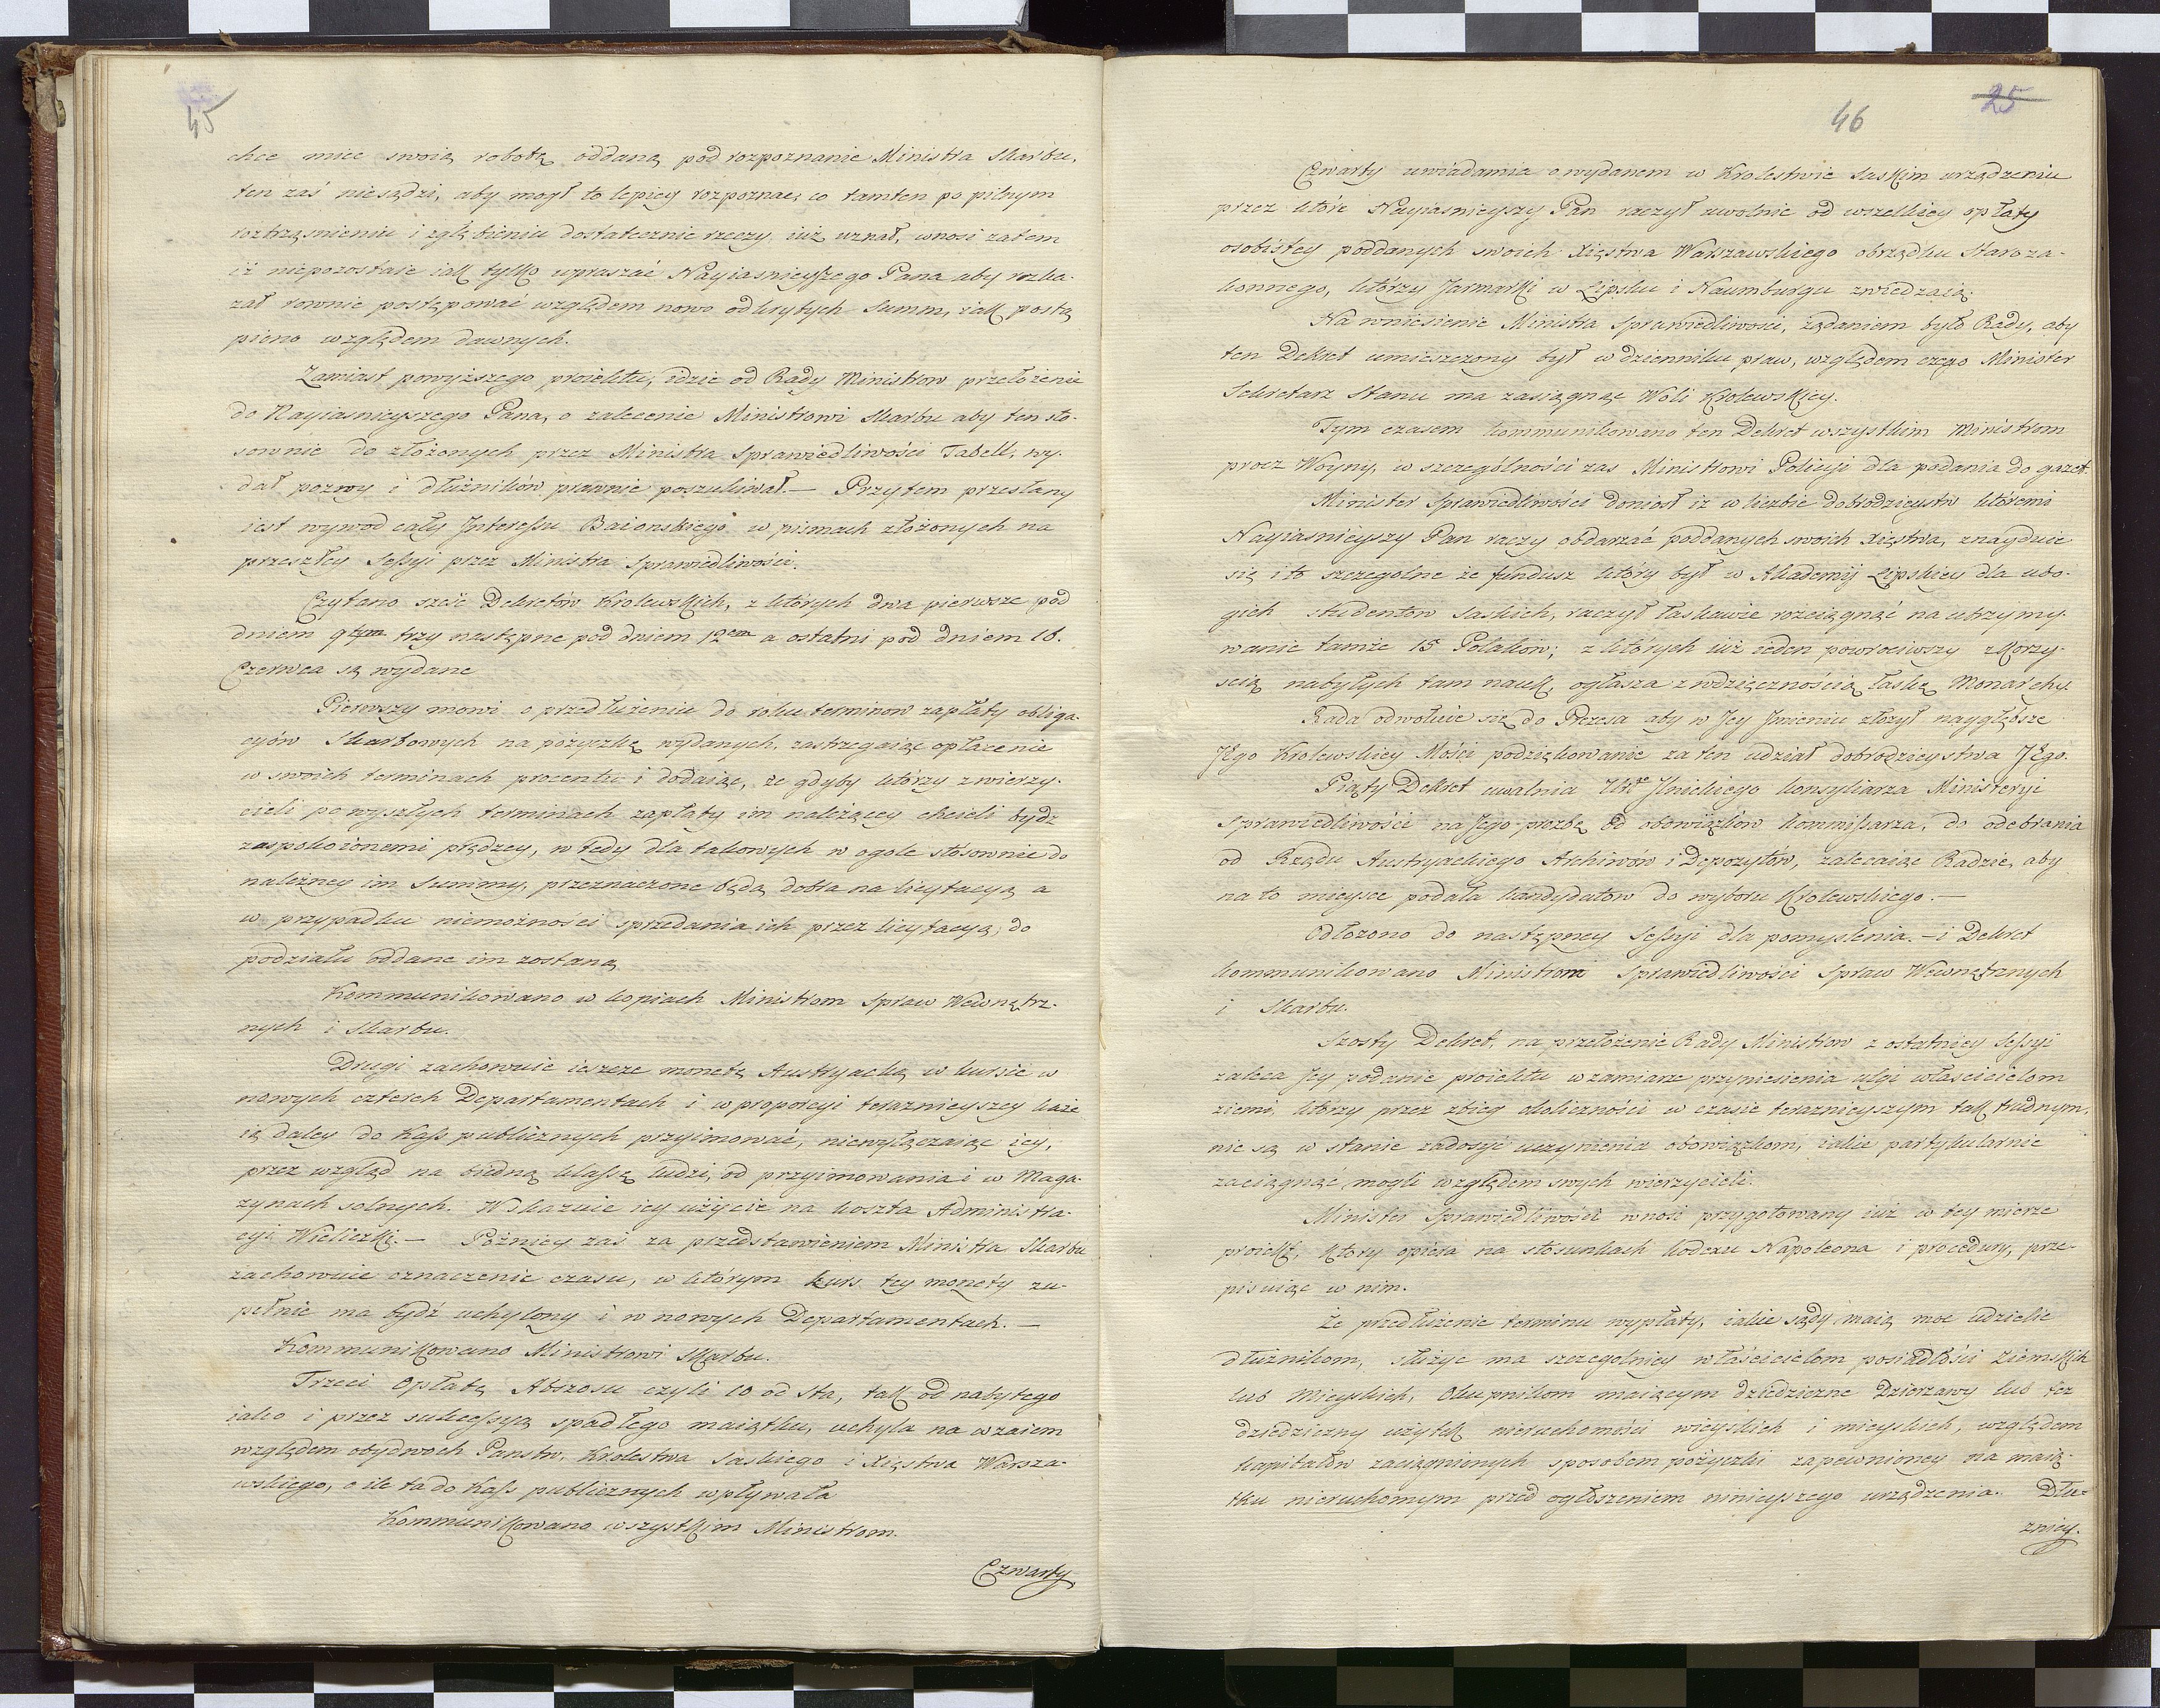 45
chce miec swoią robotę oddaną pod rozpoznanie Ministra Skarbu,
ten zaś niesądzi, aby mogł to lepiey rozpoznac, co tamten po pilnym
roztrząsnieniu i zgłębieniu dostatecznie rzeczy iuż uznał, wnosi zatem
iż niepozostaie iak tylko upraszać Nayiasnieyszego Pana aby rozka-
zał rownie postępować względem nowo odkrytych Summ, iak postą
piono względem dawnych.
Zamiast powyższego proiektu, idzie od Rady Ministrow przełożenie
do Nayiasnieyszego Pana, o zalecenie Ministrowi Skarbu aby ten sto-
sownie do złożonych przez Ministra Sprawiedliwości Tabell, wy-
dał pozwy i dłużników prawnie poszukiwał.— Przytem przesłany
iest wywod cały Interessu Baionskiego w pismach złożonych na
przeszłey Sessyi przez Ministra Sprawiedliwości.
Czytano sześc Dekretów Krolewskich, z których dwa pierwsze pod
dniem 9tym trzy następne pod dniem 12em a ostatni pod dniem 16.
Czerwca są wydane
Pierwszy mowi o przedłużeniu do roku terminow zapłaty obliga-
cyów Skarbowych na pożyczkę wydanych, zastrzegaiąc opłacenie
w swoich terminach procentu i dodaiąc, że gdyby którzy z wierzy-
cieli po wyszłych terminach zapłaty im należącey chcieli bydz
zaspokoionemi prędzey, w tedy dla takowych w ogole stósownie do
należney im Summy, przeznaczone będą dobra na licytacyą a
w przypadku niemożności sprzedania ich przez licytacyą, do
podziału oddane im zostaną
Kommunikowano w kopiach Ministrom Spraw Wewnętrz-
nych i Skarbu.
Drugi zachowuie ieszcze monetę Austryacką w kursie w
nowych czterech Departamentach i w proporcyi teraznieyszey każe
ią daley do Kass publicznych przyimować, niewyłączaiąc iey,
przez wzgląd na biedną klassę ludzi, od przyimowania i w Maga-
zynach solnych. Wskazuie iey użycie na koszta Administra-
cyi Wieliczki.— Pozniey zaś za przedstawieniem Ministra Skarbu
zachowuie oznaczenie czasu, w którym kurs tey monety zu-
pełnie ma bydź uchylony i w nowych Departamentach.—
Kommunikowano Ministrowi Skarbu.
Trzeci Opłatę Abszosu czyli 10 od sta, tak od nabytego
iako i przez sukcessyą spadłego maiątku, uchyla na wzaiem
względem obydwoch Panstw, Krolestwa Saskiego i Xięstwa Warsza-
wskiego, o ile ta do Kass publicznych wpływała
Kommunikowano wszystkim Ministrom.
Czwarty
46
25
Czwarty uwiadamia o wydanem w Krolestwie Saskim urządzeniu
przez które Nayiasnieyszy Pan raczył uwolnic od wszelkiey opłaty
osobistey poddanych swoich Xięstwa Warszawskiego obrządku Staroza-
konnego, którzy Jarmarki w Lipsku i Naumburgu zwiedzaią.
Na wniesienie Ministra Sprawiedliwosci, żądaniem było Rady, aby
ten Dekret umieszczony był w dzienniku praw, względem czego Minister
Sekretarz Stanu ma zasiągnąc Woli Krolewskiey.
Tym czasem kommunikowano ten Dekret wszystkim Ministrom
procz Woyny, w szczególności zas Ministrowi Policyi dla podania do gazet
Minister Sprawiedliwości doniosł iż w liczbie dobrodzieystw któremi
Nayiasnieyszy Pan raczy obdarzać poddanych swoich Xięstwa, znayduie
się i to szczegolne że fundusz który był w Akademij Lipskiey dla ubo-
gich studentow Saskich, raczył łaskawie rościągnąć na utrzymy-
wanie tamże 15 Polakow; z których iuż ieden powrociwszy z korzy-
scią nabytych tam nauk, ogłasza z wdzięcznością łaskę Monarchy.
Rada odwołuie się do Prezesa aby w Jey Jmieniu złożył naygłębsze
JEgo Krolewskiey Mości podziękowanie za ten udział dobrodzieystwa JEgo.
Piąty Dekret uwalnia Ilnickiego konsyliarza Ministeryi
Sprawiedliwości na Jego prozbę od obowiązków kommissarza, do odebrania
od Rządu Austryackiego Archiwów i Depozytów, zalecaiąc Radzie, aby
na to mieysce podała kandydatow do wyboru Krolewskiego.—
Odłożono do następney Sessyi dla pomyslenia.—i Dekret
kommunikowano Ministrom Sprawiedliwości Spraw Wewnętrznych
i Skarbu.
Szosty Dekret, na przełożenie Rady Ministrow z ostatniey Sessyi
zaleca Jey podanie proiektu w zamiarze przyniesienia ulgi właścicielom
ziemi, ktorzy przez zbieg okoliczności w czasie teraznieyszym tak trudnym,
nie są w stanie zadosyć uczynienia obowiązkom, iakie partykularnie
zaciągnąć mogli względem swych wierzycieli.
Minister Sprawiedliwości wnosi przygotowany iuż w tey mierze
proiekt, ktory opiera na stosunkach kodexu Napoleona i procedury, prze-
pisuiąc w nim.
Że przedłużenie terminu wypłaty, iakie sądy maią moc udzielic
dłużnikom, służyc ma szczegolniey właścicielom posiadłości Ziemskich
lub Mieyskich, Okupnikom maiącym dziedziczne Dzierzawy lub też
dziedziczny użytek nieruchomości wieyskich i mieyskich, względem
kapitałów zaciągnionych sposobem pożyczki zapewnioney na maią-
tku nieruchomym przed ogłoszeniem ninieyszego urządzenia. Dłu-
zniey.